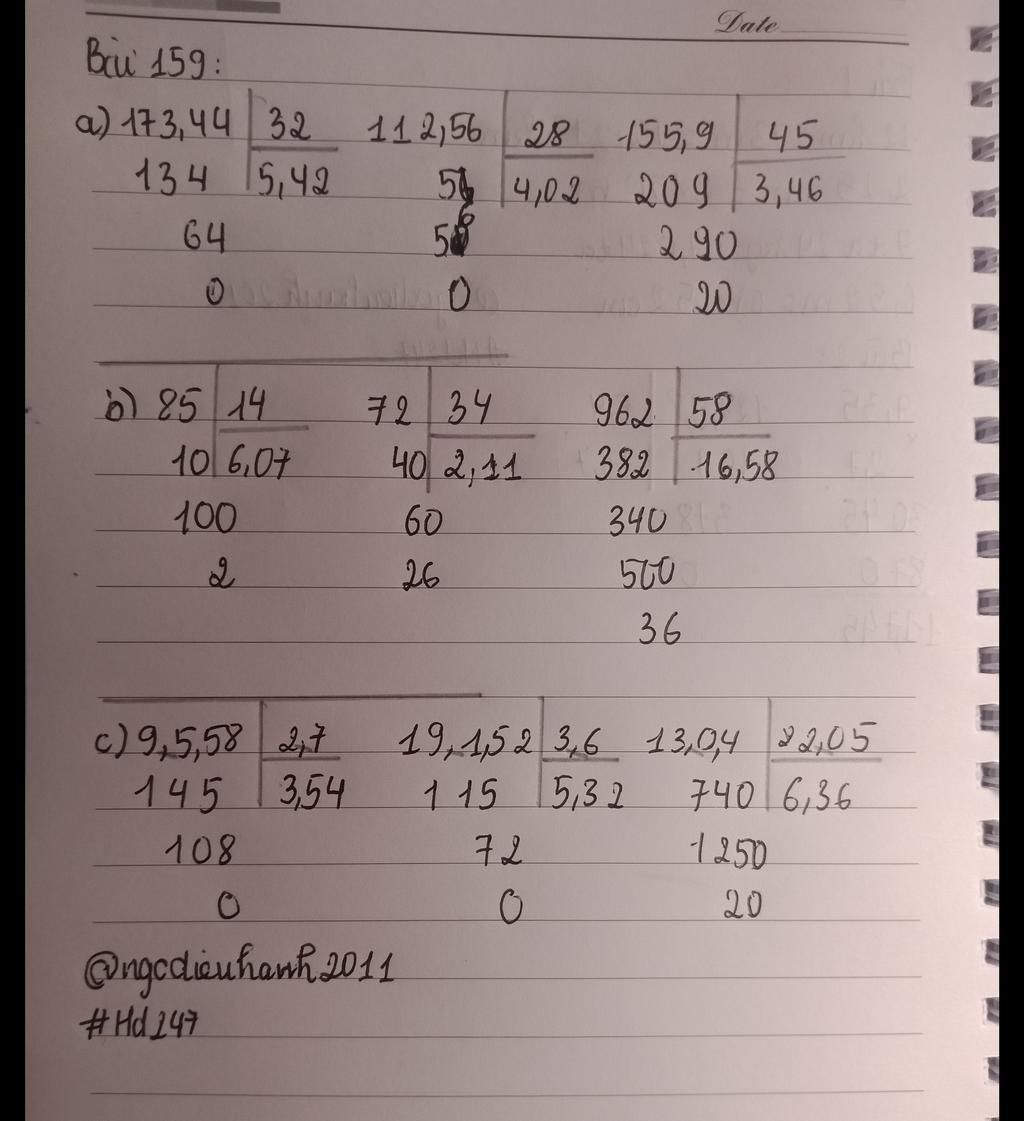 Date
Bài 159:
a) 173,44 32 112,56 28 155,9 45
134 5,42 56 4,02 209 3,46
64 56 290
0 0 20
b) 85 14 72 34 962 58
10 6,07 40 2,11 382 16,58
100 60 340
2 26 500
36
c) 9,5,58 2,7 19,1,52 3,6 13,0,4 2,05
145 3,54 115 5,32 740 6,36
108 72 1250
0 0 20
@ngcdieuhanh2011
#Hd247